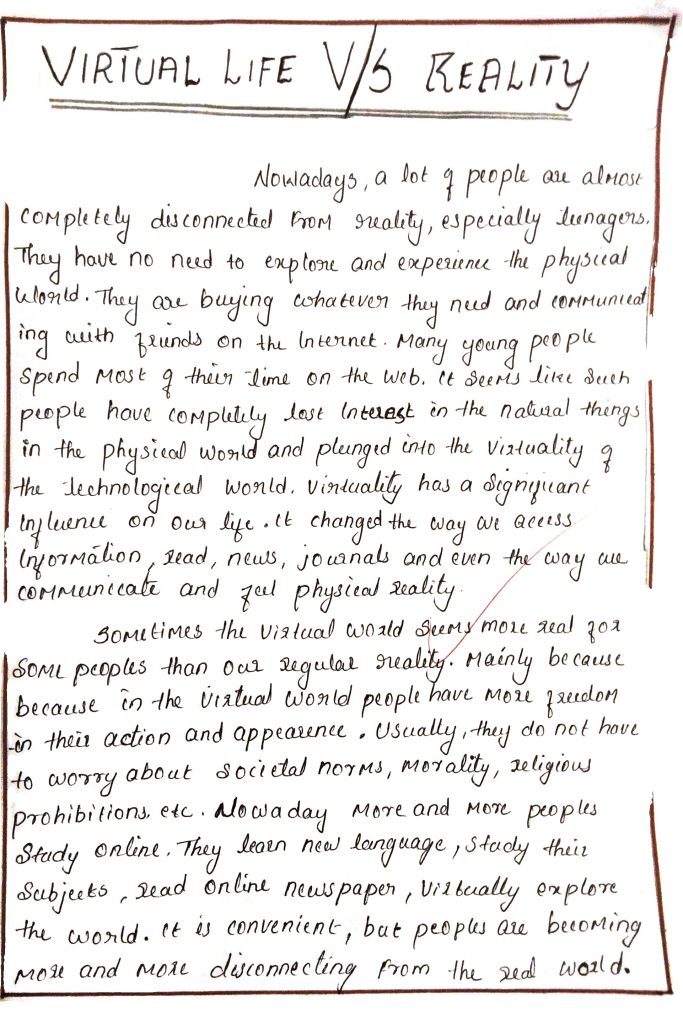 VIRTUAL LIFE V/S REALITY
Nowadays, a lot of people are almost
completely disconnected from reality, especially teenagers.
They have no need to explore and experience the physical
world. They are buying whatever they need and communicat
ing with friends on the Internet. Many young people
spend most of their time on the web. It seems like such
people have completely lost Interest in the natural things
in the physical world and plunged into the virtuality of
the technological world. Virtuality has a significant
Influence on our life. It changed the way we access
Information, read, news, journals and even the way we
communicate and feel physical reality.
Sometimes the virtual world seems more real for
some peoples than our regular reality. Mainly because
because in the virtual world people have more freedom
in their action and appearence. Usually, they do not have
to worry about societal norms, morality, religious
prohibitions, etc. Nowaday more and more peoples
study online. They learn new language, study their
subjects, read online newspaper, virtually explore
the world. It is convenient, but peoples are becoming
more and more disconnecting from the real world.